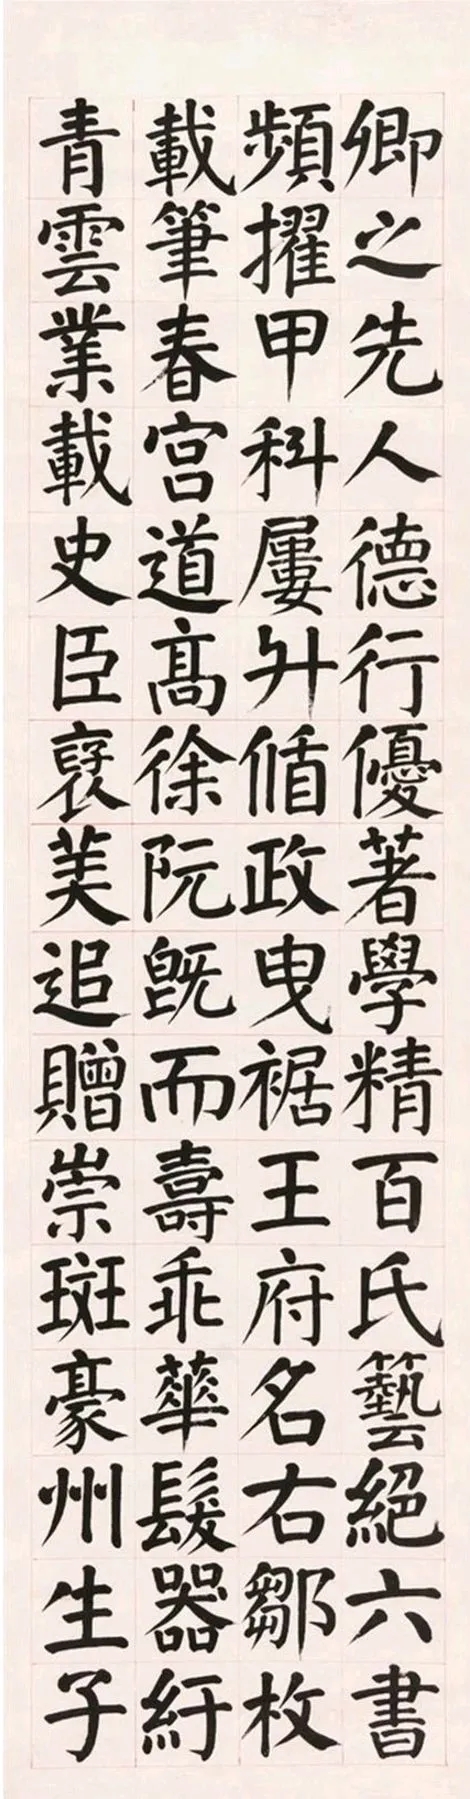 卿之先人德行優著學精百氏藝絕六書
頻擢甲科屢升循政曳裾王府名右鄒枚
載筆春宮道高徐阮既而壽乖華髮器紆
青雲業載史臣裦美追贈崇班豪州生子